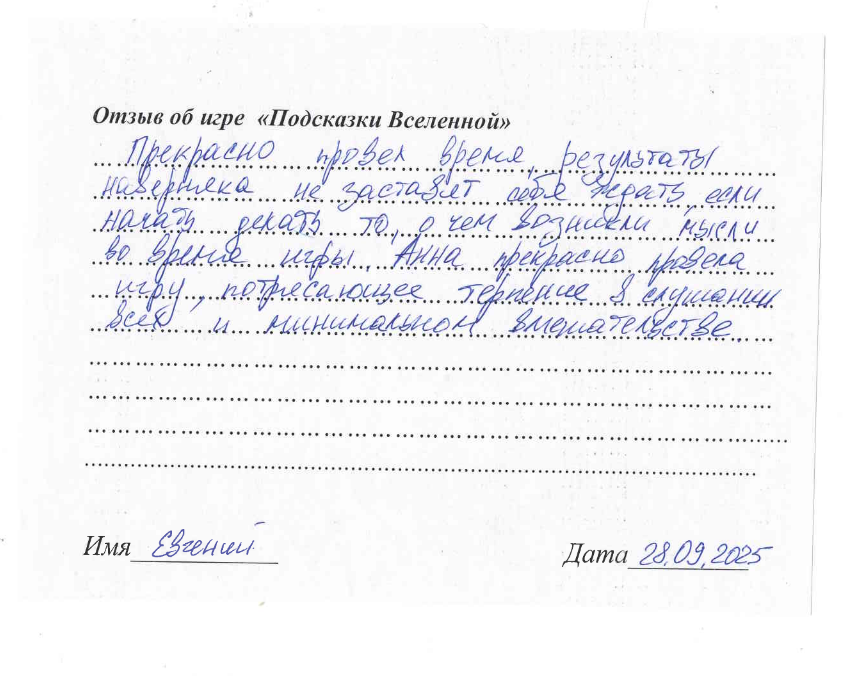 Отзыв об игре «Подсказки Вселенной»
Прекрасно провел время, результаты
наверняка не заставят себя ждать, если
начать делать то, о чем возникли мысли
во время игры. Анна прекрасно провела
игру, потрясающее терпение в слушании
всех и минимальном вмешательстве.
Имя Евгений
Дата 28.09.2025